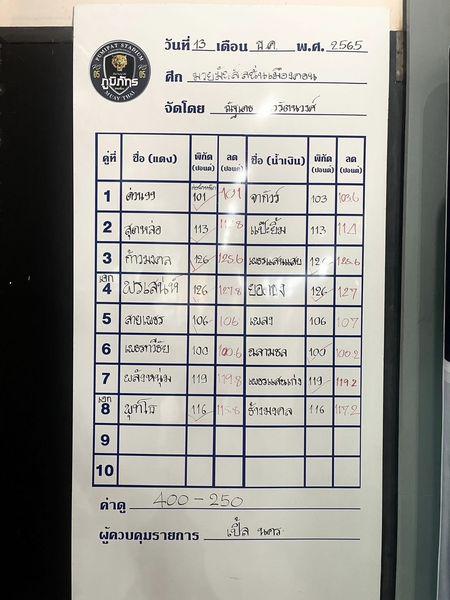 PUMIPAT STADIUM
ภูมิภัทร
MUAY THAI
วันที่ 13 เดือน พ.ศ. 2565
ศึก
จัดโดย
คู่ที่ ชื่อ (แดง) พิกัด (ปอนด์) ลด (ปอนด์) ชื่อ (น้ำเงิน) พิกัด (ปอนด์) ลด (ปอนด์)
1 101 101 103 103.6
2 สุดหล่อ 113 แป๊ะยิ้ม 113 114
3 ก้าวมงคล 126 125.6 เพชรแสนเสบ 125.6
เอก
4 พรเสน่ห์ 126 127.8 ยอดธง 126 127
5 สายเพชร 106 106 เพลง 106 107
6 เพชรทวีชัย 100 100.6 ฉลามชล 100 100.2
7 พลังหนุ่ม 119 119.8 เพชรแสนเก่ง 119 119.2
เอก
8 พุทโธ 116 ช้างมงคล 116 117.2
9
10
ค่าดู 400-250
ผู้ควบคุมรายการ เปิ้ล นคร